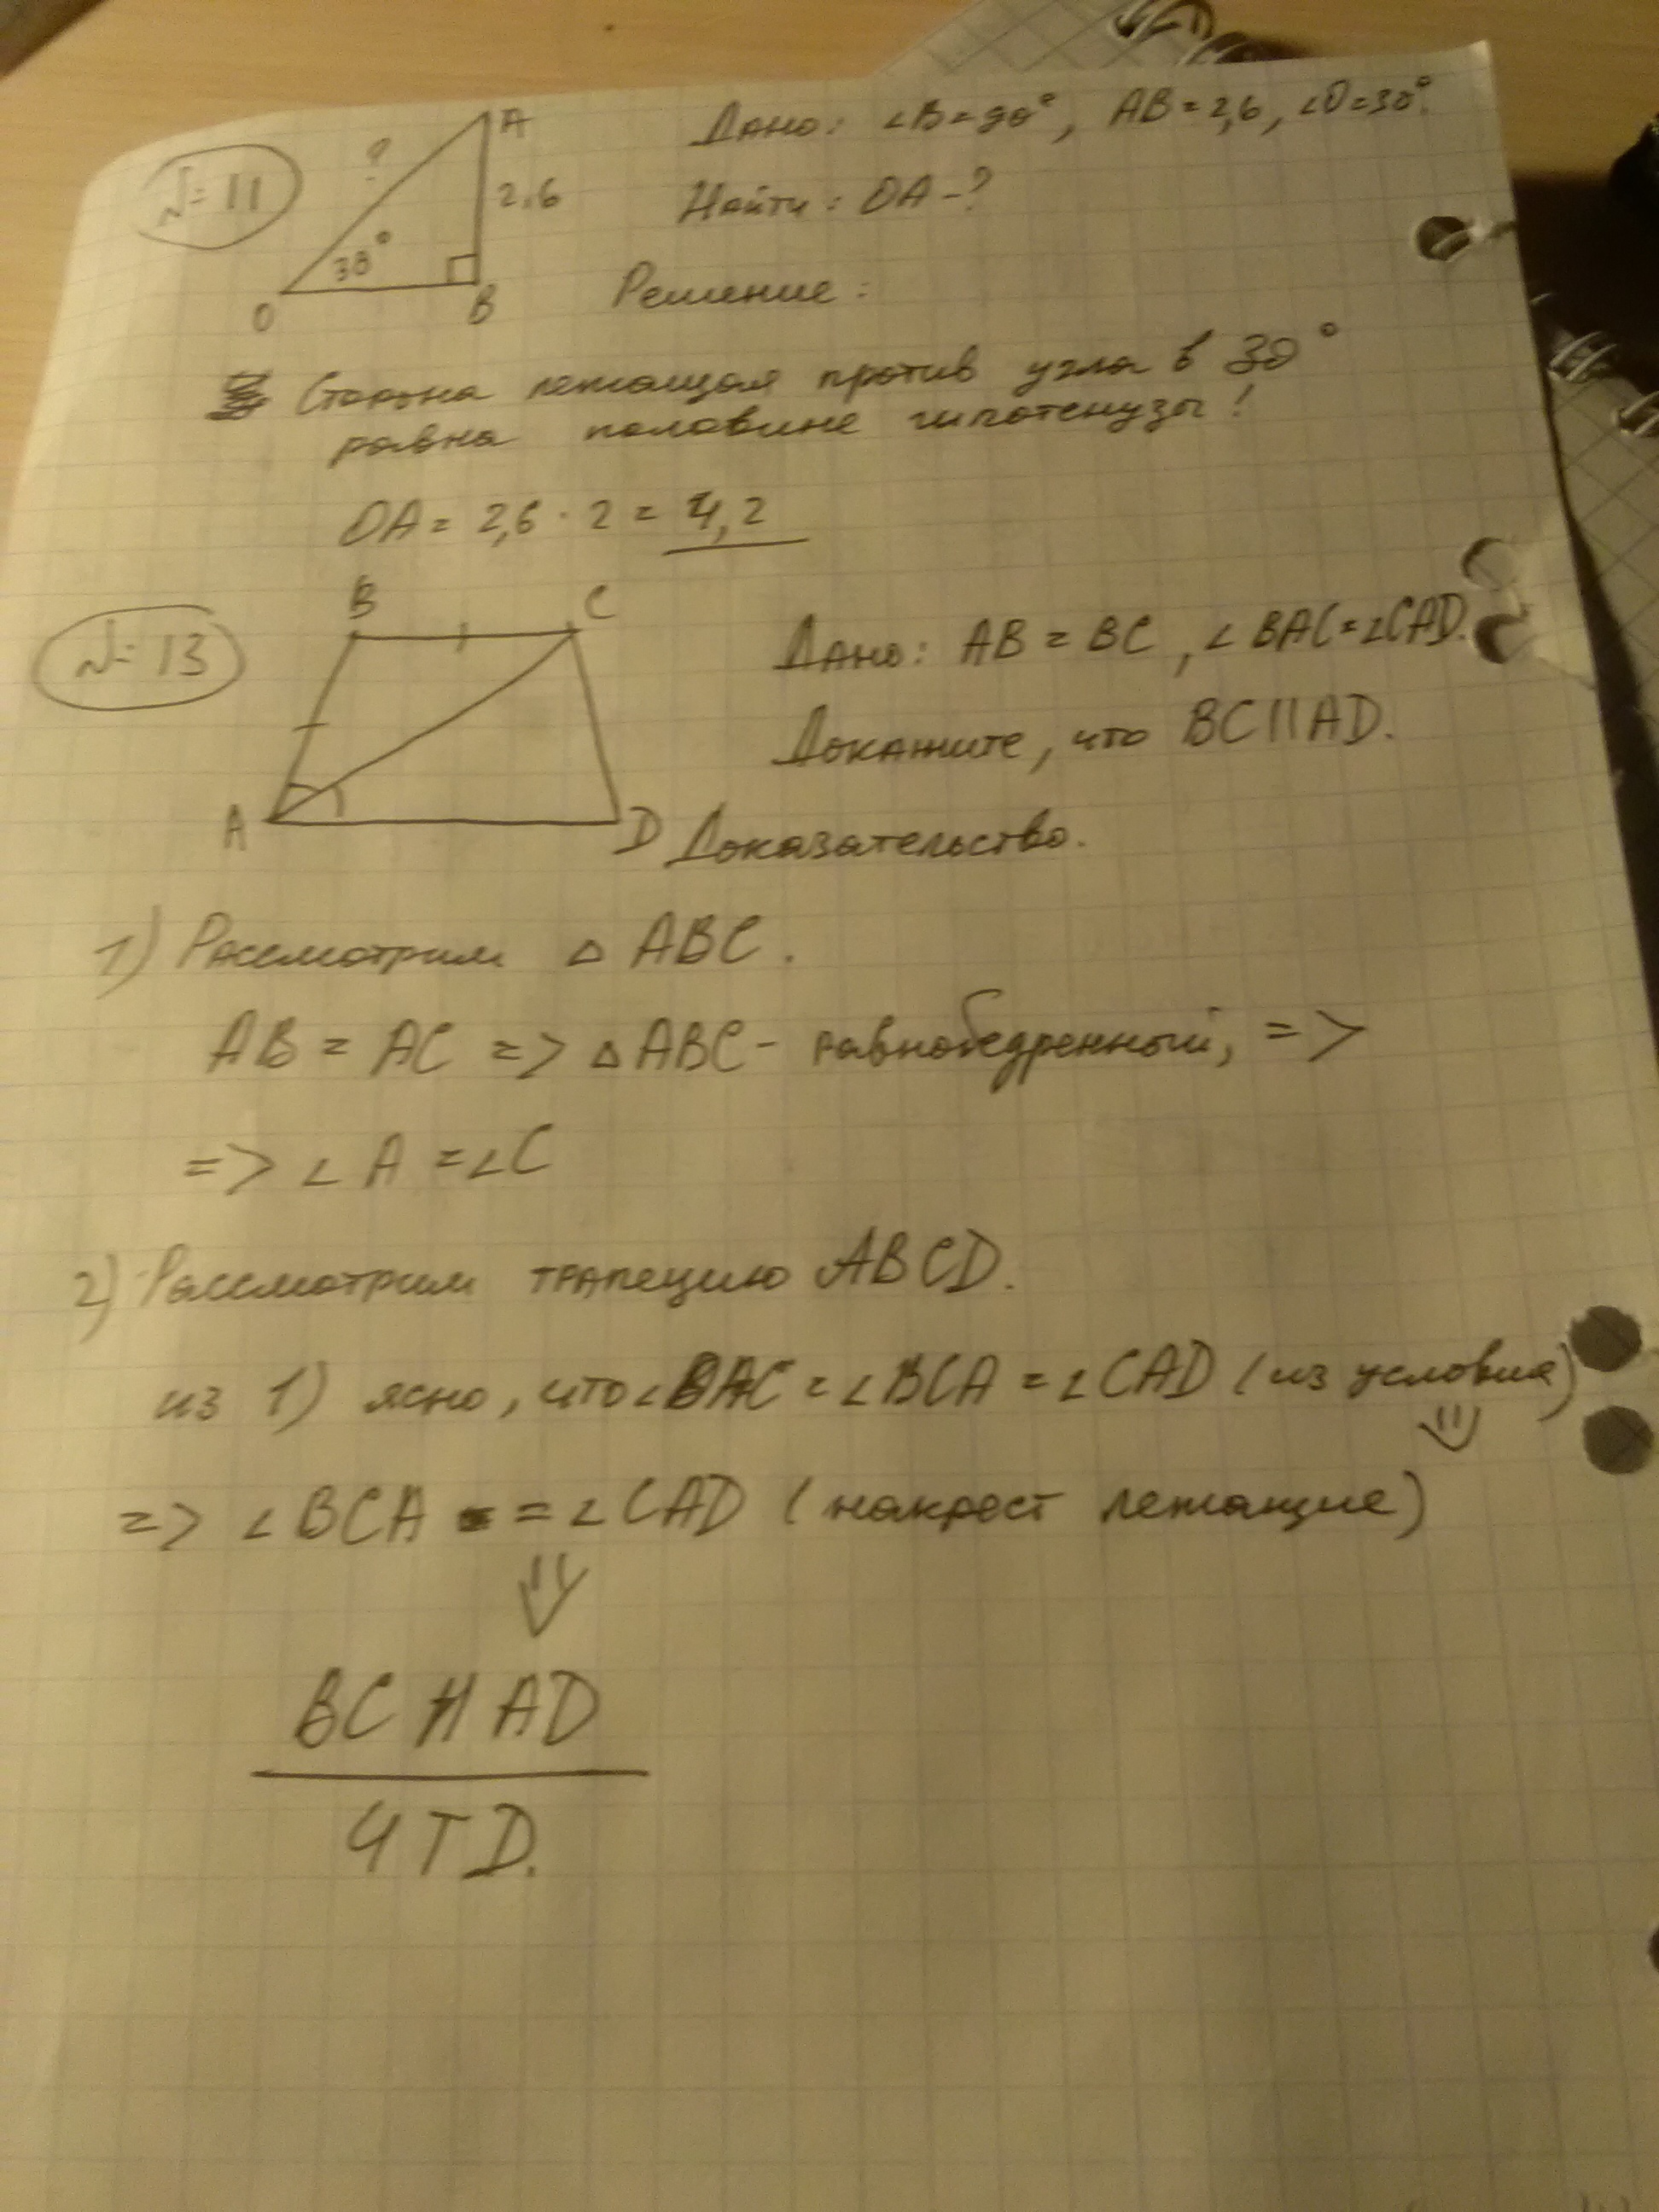 № 11
A
?
2,6
30°
O
B
Дано: ∠B=90°, AB=2,6, ∠O=30°.
Найти: OA-?
Решение:
Сторона лежащая против угла в 30°
равна половине гипотенузы!
OA = 2,6 · 2 = 4,2
№ 13
B
C
A
D
Дано: AB = BC, ∠BAC=∠CAD.
Докажите, что BC||AD.
Доказательство.
1) Рассмотрим △ ABC.
AB = AC => △ABC - равнобедренный, =>
=> ∠A = ∠C
2) Рассмотрим трапецию ABCD.
из 1) ясно, что ∠BAC = ∠BCA = ∠CAD (из условия)
=> ∠BCA = ∠CAD (накрест лежащие)
BC || AD
ЧТD.